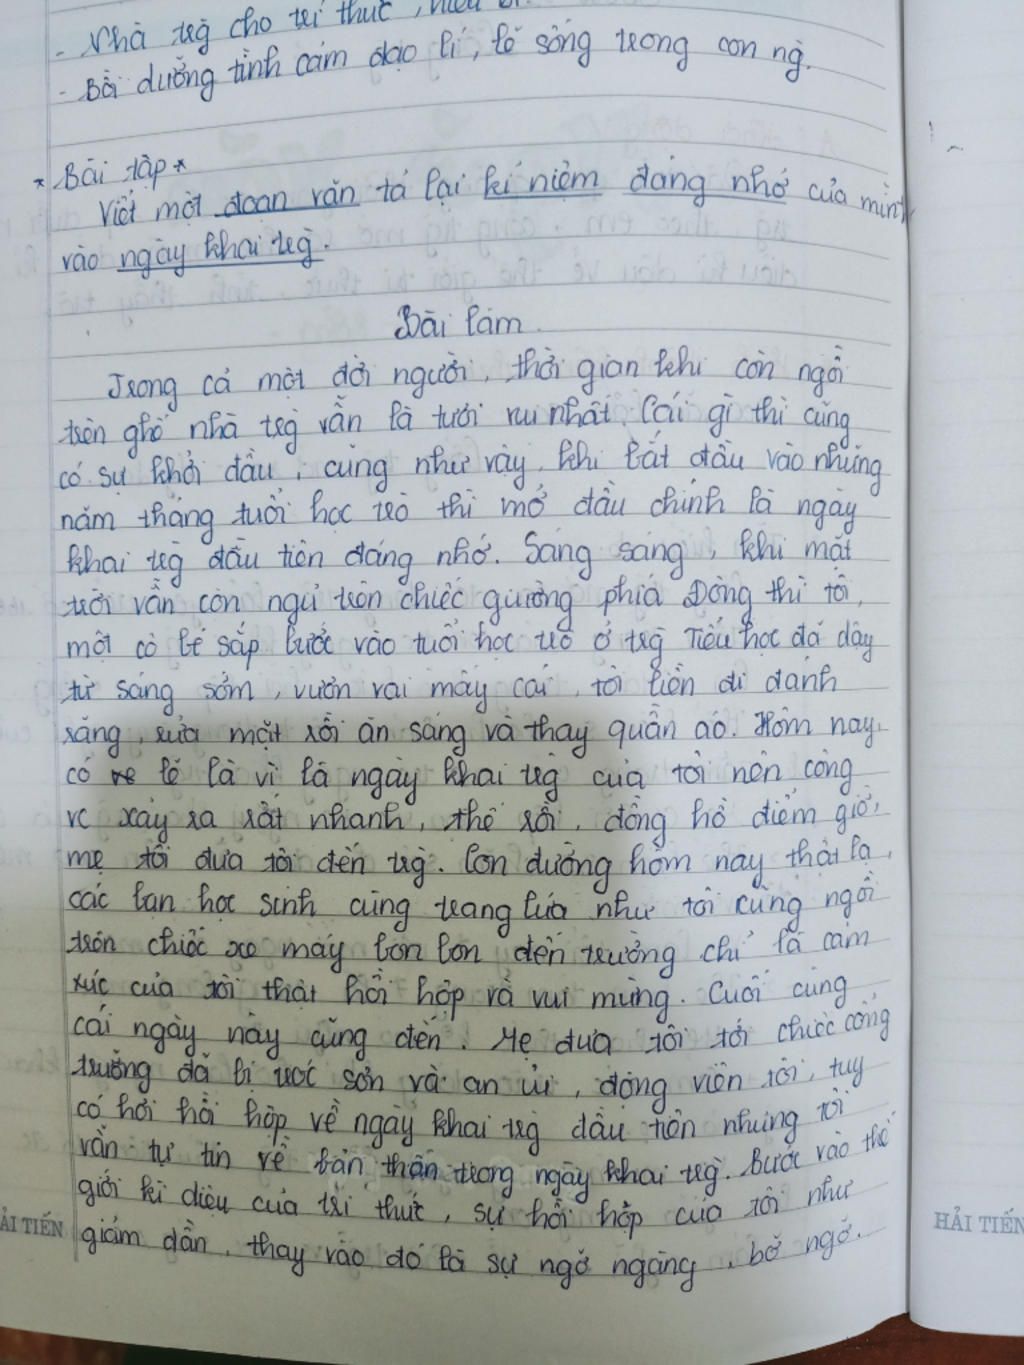 - Nhà trg cho tri thức, hiểu
- Bồi dưỡng tình cảm đạo lí, lẽ sống trong con ng.
* Bài tập *
Viết một đoạn văn tả lại kỉ niệm đáng nhớ của mình
vào ngày khai trg.
Bài làm
Trong cả một đời người, thời gian khi còn ngồi
trên ghế nhà trg vẫn là tươi vui nhất. Cái gì thì cũng
có sự khởi đầu, cũng như vậy, khi bắt đầu vào những
năm tháng tuổi học trò thì mở đầu chính là ngày
khai trg đầu tiên đáng nhớ. Sáng sáng, khi mặt
trời vẫn còn ngủ trên chiếc giường phía Đông thì tôi,
một cô bé sắp bước vào tuổi học trò ở trg Tiểu học đã dậy
từ sáng sớm, vươn vai mấy cái, tôi liền đi đánh
răng, rửa mặt rồi ăn sáng và thay quần áo. Hôm nay,
có lẽ là vì là ngày khai trg của tôi nên công
vc xảy ra rất nhanh, thế rồi, đồng hồ điểm giờ,
mẹ tôi đưa tôi đến trg. Con đường hôm nay thật lạ,
các bạn học sinh cùng trang lứa như tôi cũng ngồi
trên chiếc xe máy bon bon đến trường chỉ là cảm
xúc của tôi thật hồi hộp và vui mừng. Cuối cùng
cái ngày này cũng đến. Mẹ đưa tôi tới chiếc cổng
trường đã bị sơn và an ủi, động viên tôi, tuy
có hơi hồi hộp về ngày khai trg đầu tiên nhưng tôi
vẫn tự tin về bản thân trong ngày khai trg. Bước vào thế
giới kì diệu của tri thức, sự hồi hộp của tôi như
giảm dần, thay vào đó là sự ngỡ ngàng, bỡ ngỡ.
ẢI TIẾN
HẢI TIẾN